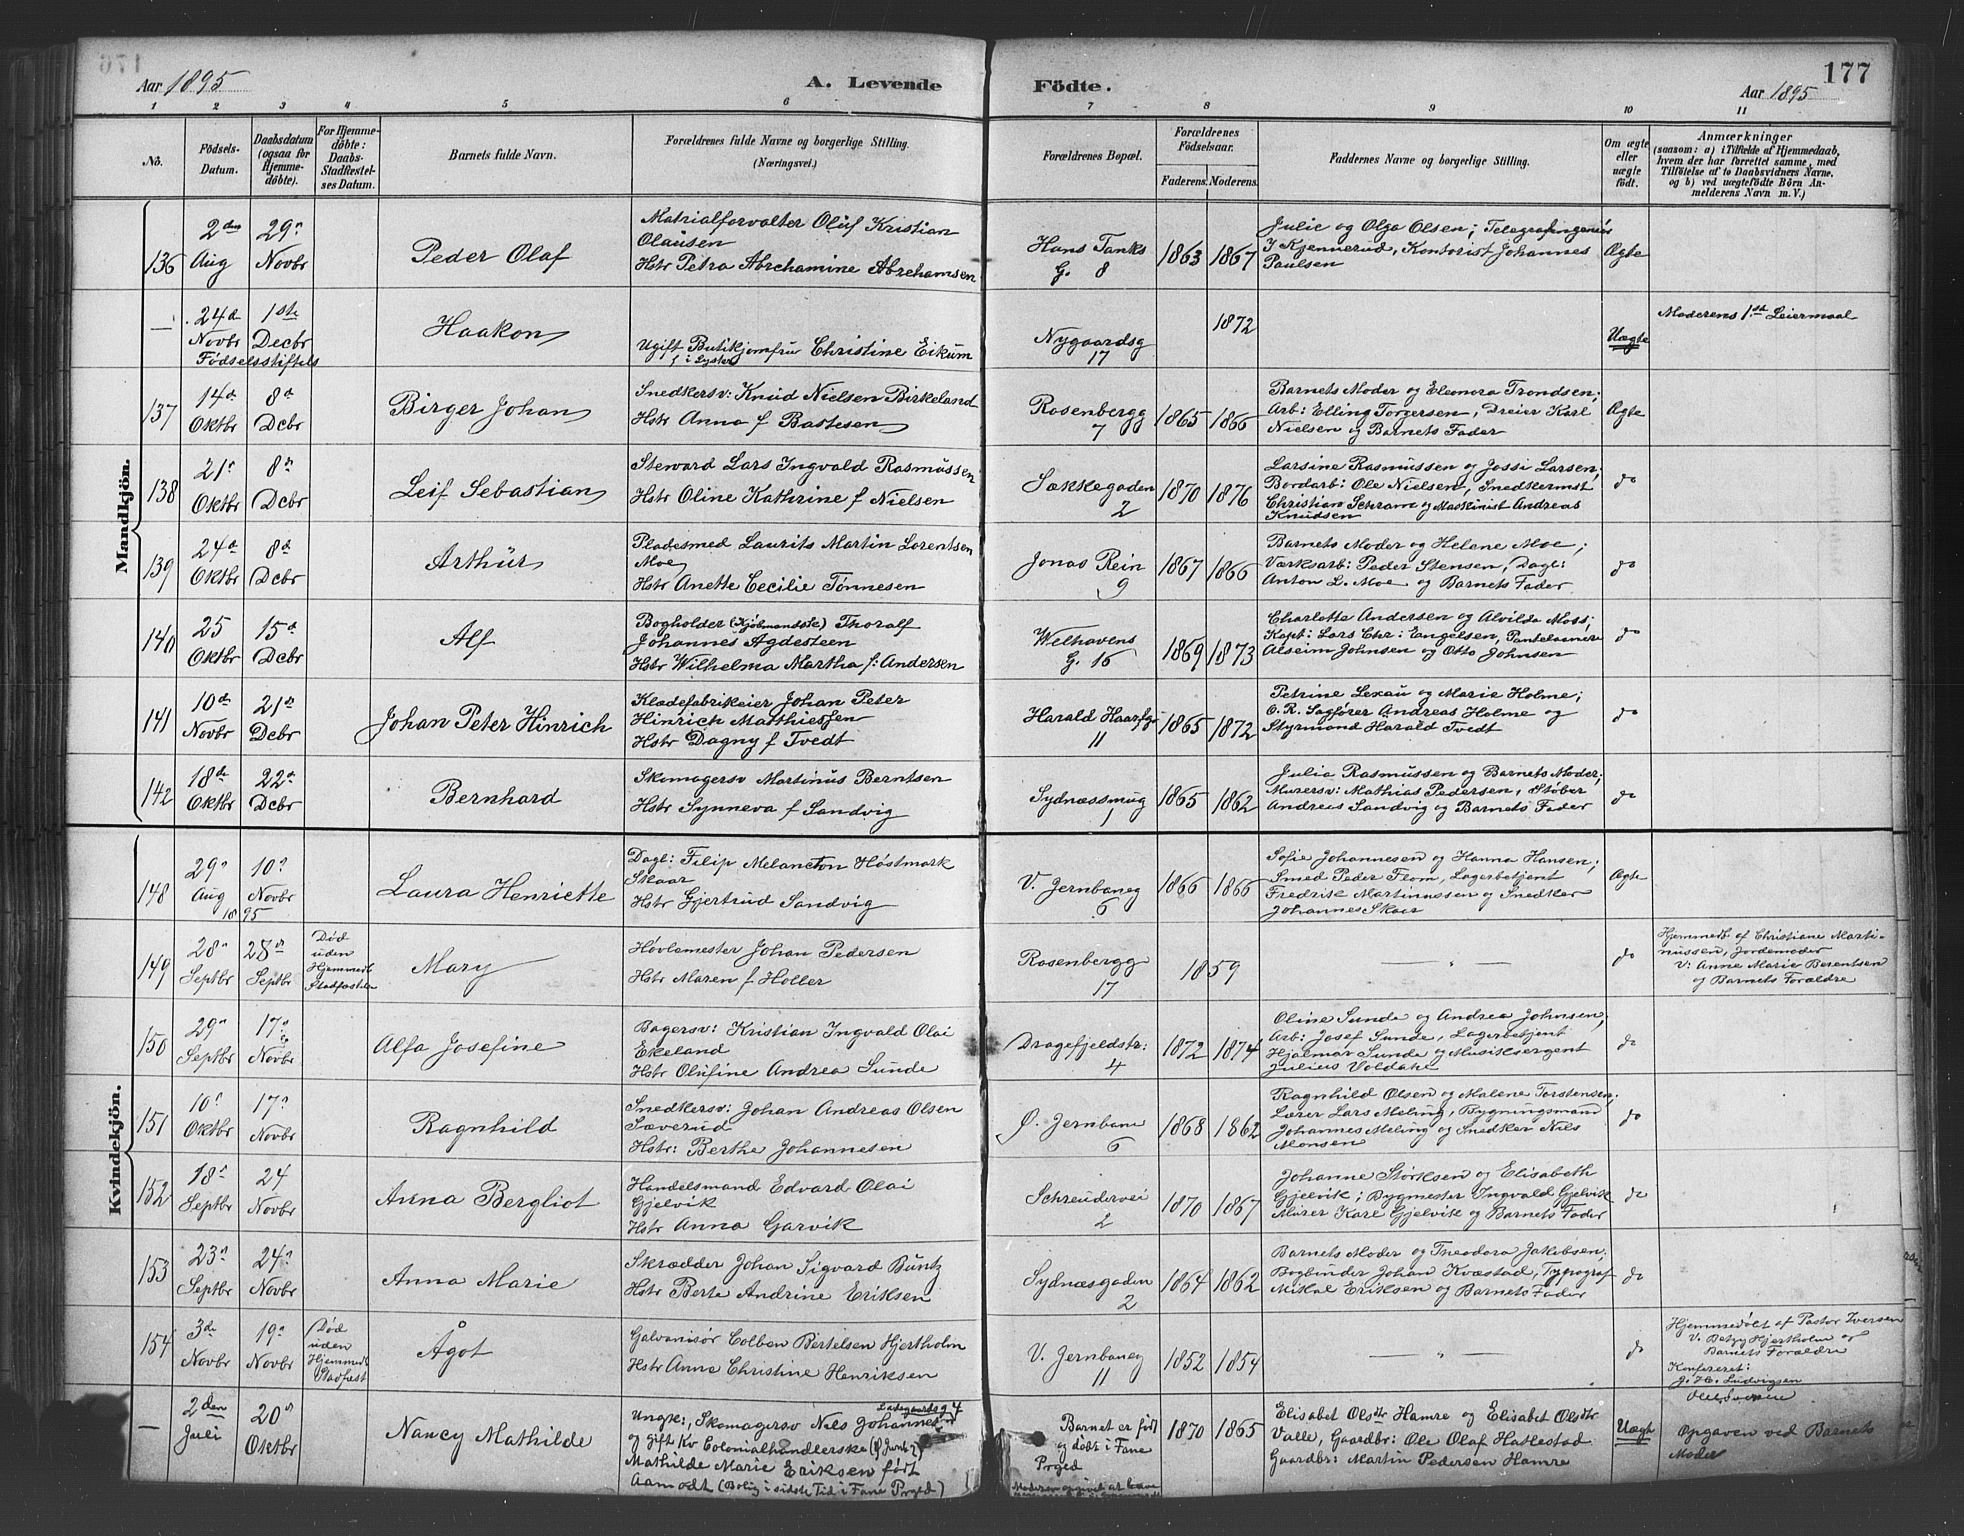 Aar 1895
A. Levende
Födte.
177
Aar 1895
1 2 3 4 5 6 7 8 9 10 11
No.
Födsels-
Datum.
Daabsdatum
(ogsaa for
Hjemme-
döbte).
For Hjemme-
döbte:
Daabs-
Stadfæstel-
ses Datum.
Barnets fulde Navn.
Forældrenes fulde Navne og borgerlige Stilling.
(Næringsvei.)
Forældrenes Bopæl.
Forældrenes
Födselsaar.
Faderens. Moderens.
Faddernes Navne og borgerlige Stilling.
Om ægte
eller
uægte
født.
Anmærkninger
(saasom: a) i Tilfælde af Hjemmedaab,
hvem der har forrettet samme, med
Tilföielse af to Daabsvidners Navne.
og b) ved uægtefödte Börn An-
melderens Navn m. V.)
Mandkjön.
136
2den
Aug
29n
Novbr
Peder Olaf
Matrialforvalter Oluf Kristian
Olausen
Hstr Petra Abrehamine Abrehamsen
Hans Tanks
G. 8
1863 1867
Julie og Olga Olsen; Telegrafingeniør
J Kjennerud, Kontorist Johannes
Paulsen
Ægte
—
24d
Novbr
1ste
Decbr
Fødselsstiftels
Haakon
Ugift Butikjomfru Christine Eikum
f i Lyster
Nygaardsg
17
1872
Uægte
Moderens 1ste Leiermaal
137
14d
Oktbr
8d
Dcbr
Birger Johan
Snedkersv: Knud Nielsen Birkeland
Hstr Anna f Bastesen
Rosenbergg
7
1865 1866
Barnets Moder og Eleonora Trondsen;
Arb: Elling Torgersen, Dreier Karl
Nielsen og Barnets Fader
Ægte
138
21n
Oktbr
8d
Dcbr
Leif Sebastian
Steward Lars Ingvald Rasmussen
Hstr Oline Kathrine f Nielsen
Sækkegaden
2
1870 1876
Larsine Rasmussen og Jossi Larsen,
Bordarb: Ole Nielsen, Snedkermst
Christian Schram og Maskinist Andreas
Knudsen
do
139
24d
Oktbr
8d
Dcbr
Arthur
Pladesmed Laurits Martin Lorentsen
Moe
Hstr Anette Cecilie Tønnesen
Jonas Rein
9
1867 1866
Barnets Moder og Helene Moe;
Værksarb: Peder Stensen, Dagl:
Anton L. Moe og Barnets Fader
do
140
25
Oktbr
15d
Dcbr
Alf
Bogholder (Kjøbmandsste) Thoralf
Johannes Agdesteen
Hstr Wilhelma Martha f: Andersen
Welhavens
G. 16
1869 1873
Charlotte Andersen og Alvilda Moss;
Kapt: Lars Chr: Engelsen, Pantelaaner
Alseim Johnsen og Otto Johnsen
do
141
10d
Novbr
21d
Dcbr
Johan Peter Hinrich
Klædefabrikeier Johan Peter
Hinrich Matthiessen
Hstr Dagny f Tvedt
Harald Haarfgr
11
1865 1872
Petrine Lexau og Marie Holme;
O. R. Sagfører Andreas Holme og
Styrmand Harald Tvedt
do
142
18de
Oktbr
22d
Dcbr
Bernhard
Skomagersv Martinus Berntsen
Hstr Synneva f Sandvig
Sydnæssmug
1
1865 1862
Julia Rasmussen og Barnets Moder;
Murersv: Mathias Pedersen, Støber
Andreas Sandvig og Barnets Fader
do
Kvindekjön.
148
29n
Aug
10n
Novbr
1895
Laura Henriette
Dagl: Filip Melancton Høstmark
Skaar
Hstr Gjertrud Sandvig
V. Jernbaneg
6
1866 1866
Sofie Johannesen og Hanna Hansen;
Smed Peder Flom, Lagerbetjent
Fredrik Martinussen og Snedker
Johannes Skaar
Ægte
149
28n
Septbr
28n
Septbr
Død
uden
Hjemmedb
Stadfæstelse
Mary
Høvlemester Johan Pedersen
Hstr Maren f Holler
Rosenbergg
17
1859
— " —
do
Hjemmedb. af Christiane Marti-
nussen, Jordemoder
V: Anne Marie Berentsen
og Barnets Forældre
150
29n
Septbr
17n
Novbr
Alfa Josefine
Bagersv: Kristian Ingvald Olai
Ekeland
Hstr Olufine Andrea Sunde
Dragefjeldstr:
4
1872 1874
Oline Sunde og Andrea Johnsen,
Arb: Josef Sunde, Lagerbetjent
Hjalmar Sunde og Musiksergent
Julius Voldahl
do
151
10n
Oktbr
17n
Novbr
Ragnhild
Snedkersv: Johan Andreas Olsen
Sæverud
Hstr: Berthe Johannesen
Ø. Jernbane
6
1868 1862
Ragnhild Olsen og Malene Torstensen,
Lærer Lars Meling, Bygningsmand
Johannes Meling og Snedker Nils
Monsen
do
152
18n
Septbr
24
Novbr
Anna Bergliot
Handelsmand Edvard Olai
Gjelvik
Hstr Anna Garvik
Schreudervei
2
1870 1867
Johanne Størksen og Elisabeth
Gjelvik; Bygmester Ingvald Gjelvik
Murer Karl Gjelvik og Barnets Fader
do
153
23n
Septbr
24n
Novbr
Anna Marie
Skrædder Johan Sigvard Buntz
Hstr Berte Andrine Eriksen
Sydnæsgaden
2
1864 1862
Barnets Moder og Theodora Jakobsen;
Bogbinder Johan Kvæstad, Typograf
Mikal Eriksen og Barnets Fader
do
154
3de
Novbr
19n
Novbr
Død
uden
Hjemmedb
Stadfæst
Ågot
Galvanisør Colban Bertelsen Hjertholm
Hstr Anna Christine Henriksen
V. Jernbaneg
11
1852 1854
— " —
do
Hjemmedøbt af Pastor Iversen
V. Betzy Hjertholm og
Barnets Forældre
Konfereret:
J. H. Ludvigsen
—
2den
Juli
20n
Oktbr
Nancy Mathilde
Ladegaardsg 4
Ungk:, Skomagersv Nils Johannesen
og gift Kv Colonialhandlerske
Mathilde Marie Eriksen født
Aamodt (Bolig i sidste Tid i Fane Prgd)
Barnet er født
og døbt i Fane
Prged
1870 1865
Elisabet Olsdtr Hamre og Elisabet Olsdtr
Valle, Gaardbr: Ole Olaf Hatlestad
Gaardbr: Martin Pedersen Hamre
Uægt
Opgaven ved Barnets
Moder